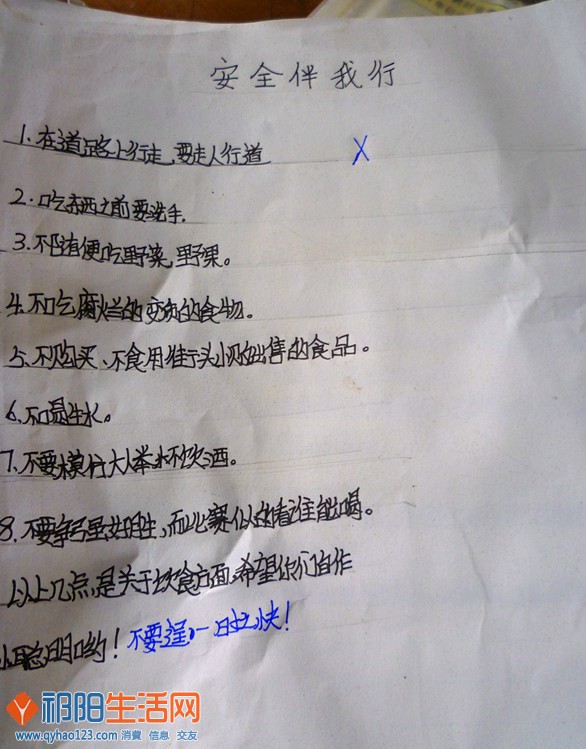 安全伴我行
1.在道路上行走,要走人行道 X
2.吃东西之前要洗手.
3.不随便吃野菜,野果。
4.不吃腐烂的变质的食物。
5、不购买、不食用街头小贩出售的食品。
6.不喝生水。
7.不要模仿大人举杯饮酒。
8.不要争强好胜,而比赛似的看谁能喝。
以上几点,是关于饮食方面,希望你们自作
小聪明哟!不要逞一时之快!
祁阳生活网
www.qyhao123.com 消费 信息 交友